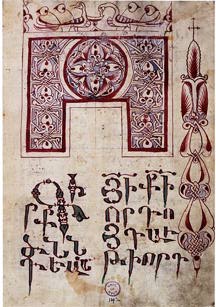 ԳԻ
ՐՔ
ԾՆՆ
ԴԵԱՆ
ՅԻ ՔԻ
ՈՐԴՈ
Յ ԴԱՒ
ԹԻ ՈՐԴ